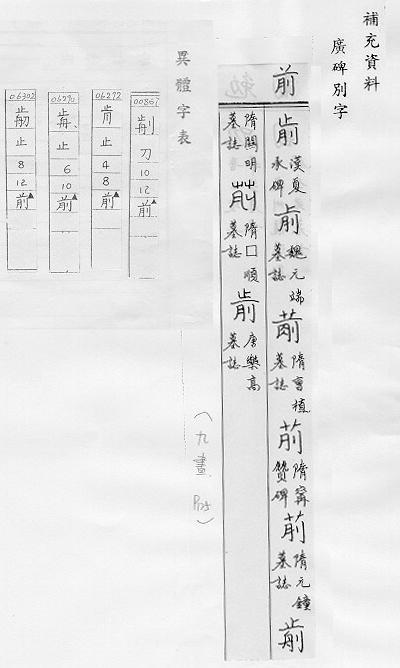 補充資料
廣碑別字
前
漢夏承碑
魏元端墓誌
隋曹植墓誌
隋甯贙碑
隋元鐘墓誌
隋關明墓誌
隋□順墓誌
唐樂高墓誌
(九畫 P125)
異體字表
00867
刀
10
12
前
06272
止
4
8
前
06290
止
6
10
前
06302
止
8
12
前